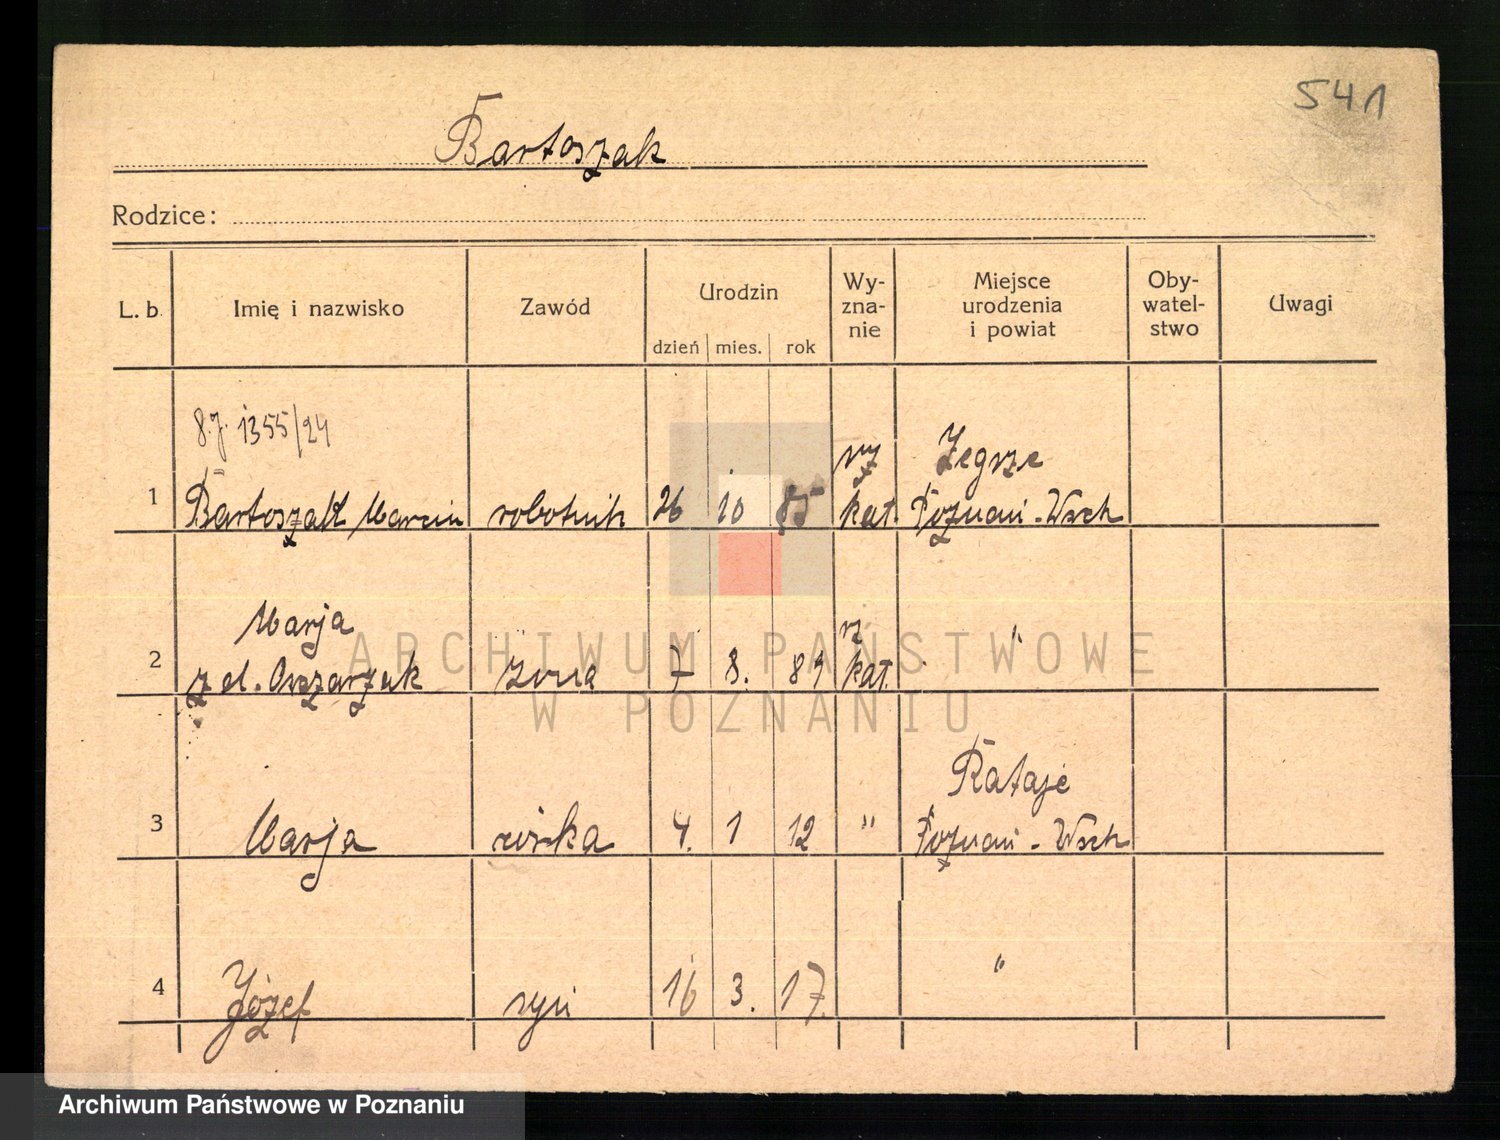 541
Bartoszak
Rodzice:
L. b. Imię i nazwisko Zawód Urodzin dzień mies. rok Wy-zna-nie Miejsce urodzenia i powiat Oby-watel-stwo Uwagi
8.J. 1355/24
rz Zegrze
1 Bartoszak Marcin robotnik 26 10 85 kat. Poznań-Wsch
Marja rz
2 z d. żona 7 8. 89 kat. "
Rataje
3 Marja córka 4. 1 12 " Poznań-Wsch
4 Józef syn 16 3. 17. "
ARCHIWUM PAŃSTWOWE
W POZNANIU
Archiwum Państwowe w Poznaniu